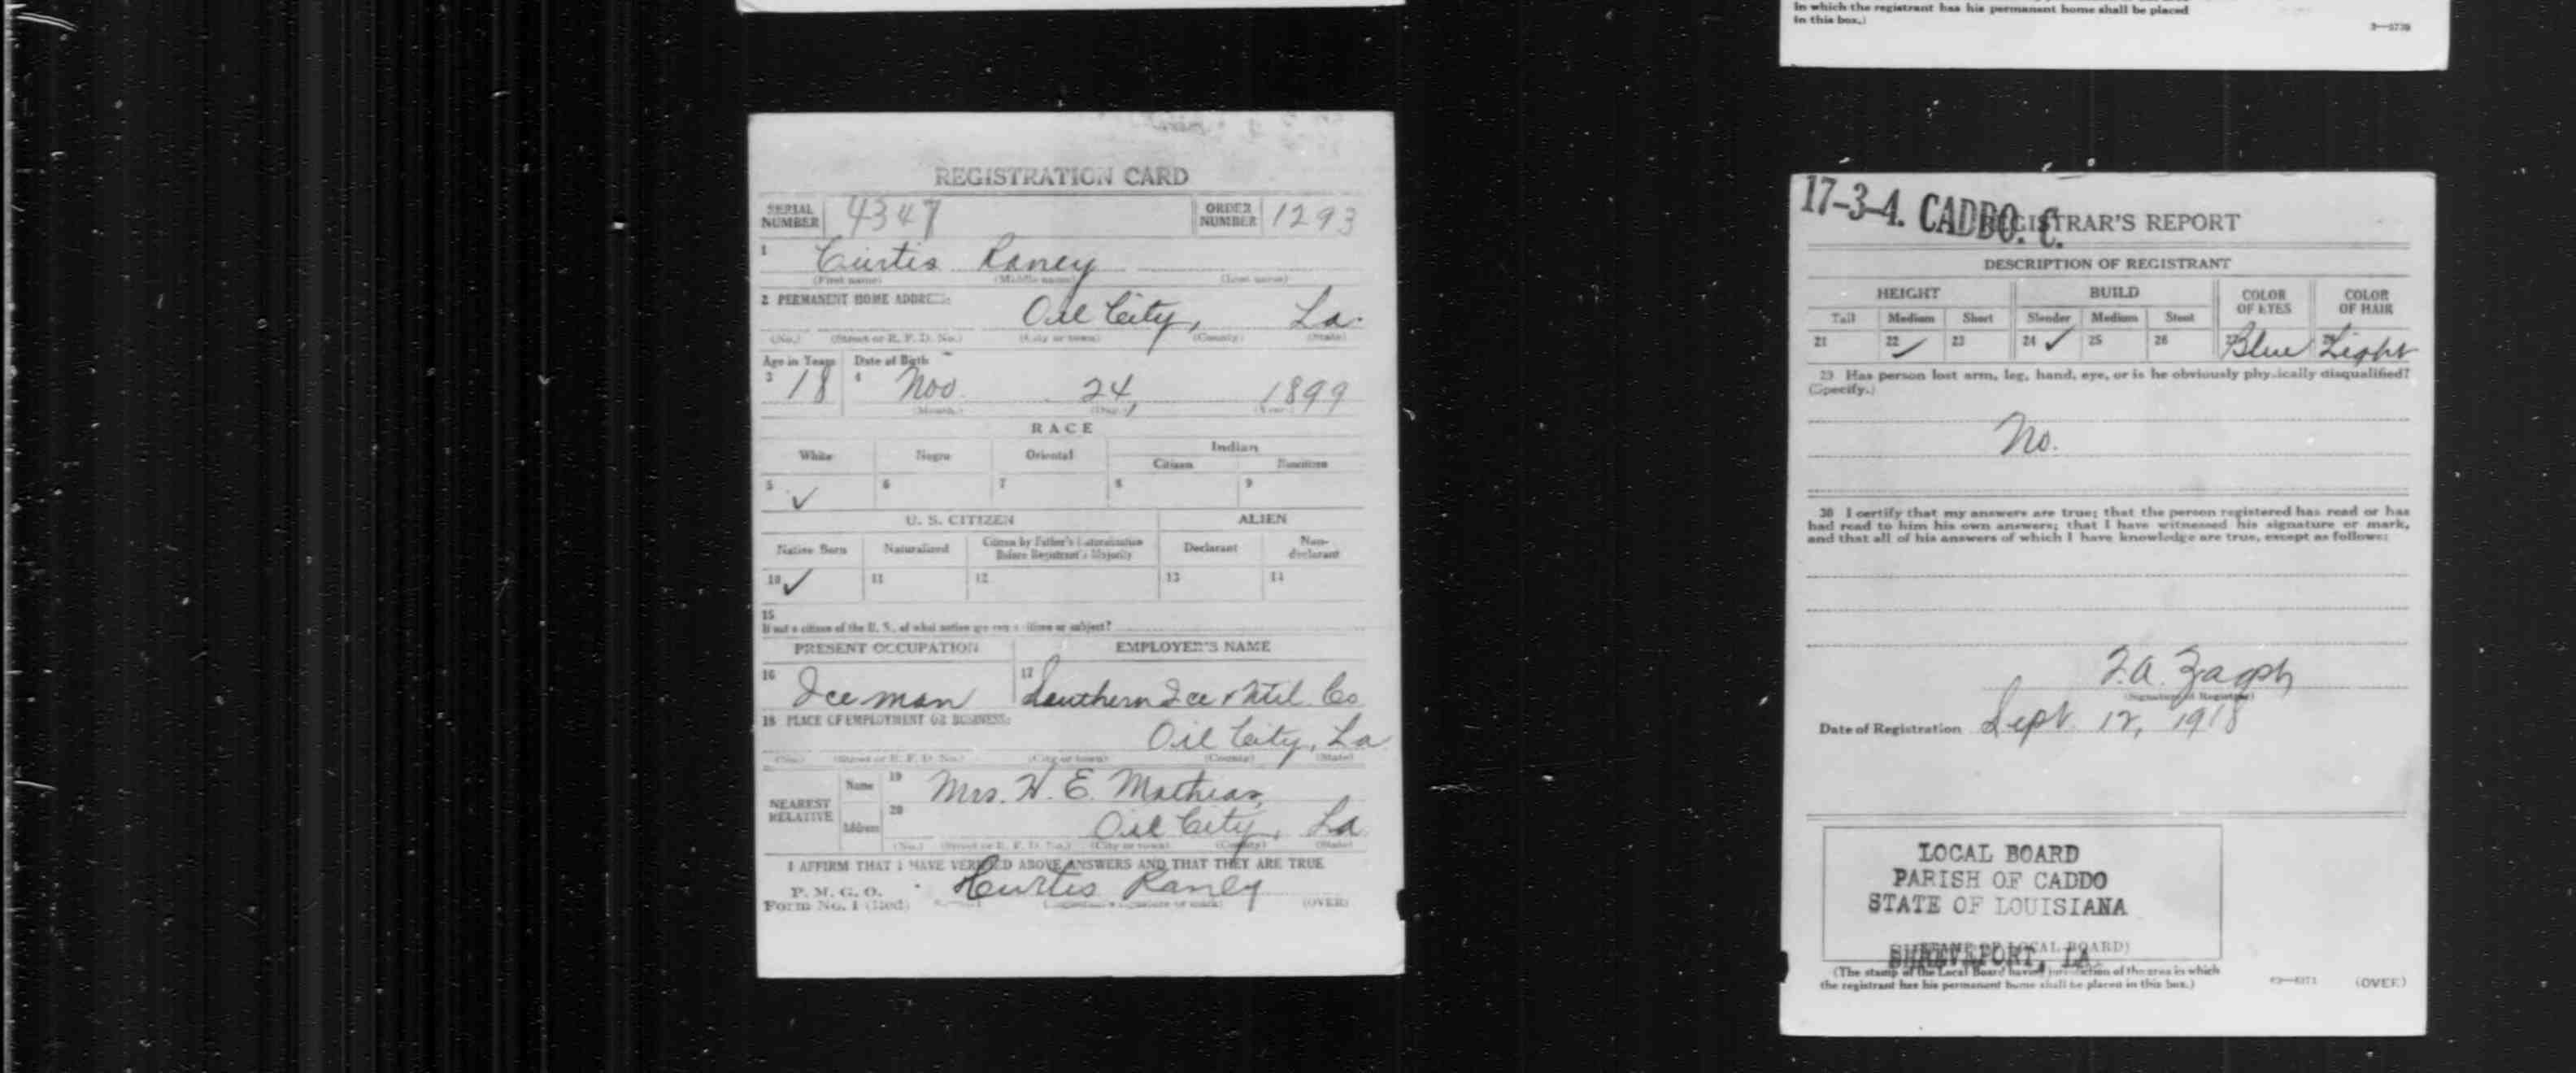 in which the registrant has his permanent home shall be placed
in this box.)
REGISTRATION CARD
SERIAL NUMBER 4347 ORDER NUMBER 1293
1 Curtis Raney
(First name) (Middle name) (Last name)
2 PERMANENT HOME ADDRESS:
Oil City, La.
(No.) (Street or R. F. D. No.) (City or town) (County) (State)
Age in Years Date of Birth
3 18 4 Nov. 24, 1899
(Month.) (Day.) (Year.)
RACE
White Negro Oriental Indian
Citizen Noncitizen
5 ✓ 6 7 8 9
U. S. CITIZEN ALIEN
Native Born Naturalized Citizen by Father's Naturalization Before Registrant's Majority Declarant Non-declarant
10 ✓ 11 12 13 14
15
If not a citizen of the U. S., of what nation are you a citizen or subject?
PRESENT OCCUPATION EMPLOYER'S NAME
16 Ice man 17 Southern Ice & Util. Co
18 PLACE OF EMPLOYMENT OR BUSINESS:
Oil City, La
(No.) (Street or R. F. D. No.) (City or town) (County) (State)
NEAREST RELATIVE Name 19 Mrs. H. E. Mathias,
Address 20 Oil City, La
(No.) (Street or R. F. D. No.) (City or town) (County) (State)
I AFFIRM THAT I HAVE VERIFIED ABOVE ANSWERS AND THAT THEY ARE TRUE
P. M. G. O.
Form No. 1 (Red) Curtis Raney (OVER)
17-3-4. CADDO. C.
REGISTRAR'S REPORT
DESCRIPTION OF REGISTRANT
HEIGHT BUILD COLOR OF EYES COLOR OF HAIR
Tall Medium Short Slender Medium Stout
21 22 ✓ 23 24 ✓ 25 26 27 Blue 28 Light
29 Has person lost arm, leg, hand, eye, or is he obviously physically disqualified?
(Specify.)
No.
30 I certify that my answers are true; that the person registered has read or has
had read to him his own answers; that I have witnessed his signature or mark,
and that all of his answers of which I have knowledge are true, except as follows:
(Signature of Registrar)
Date of Registration Sept. 12, 1918
LOCAL BOARD
PARISH OF CADDO
STATE OF LOUISIANA
SHREVEPORT, LA
(The stamp of the Local Board having jurisdiction of the area in which
the registrant has his permanent home shall be placed in this box.)
(OVER)